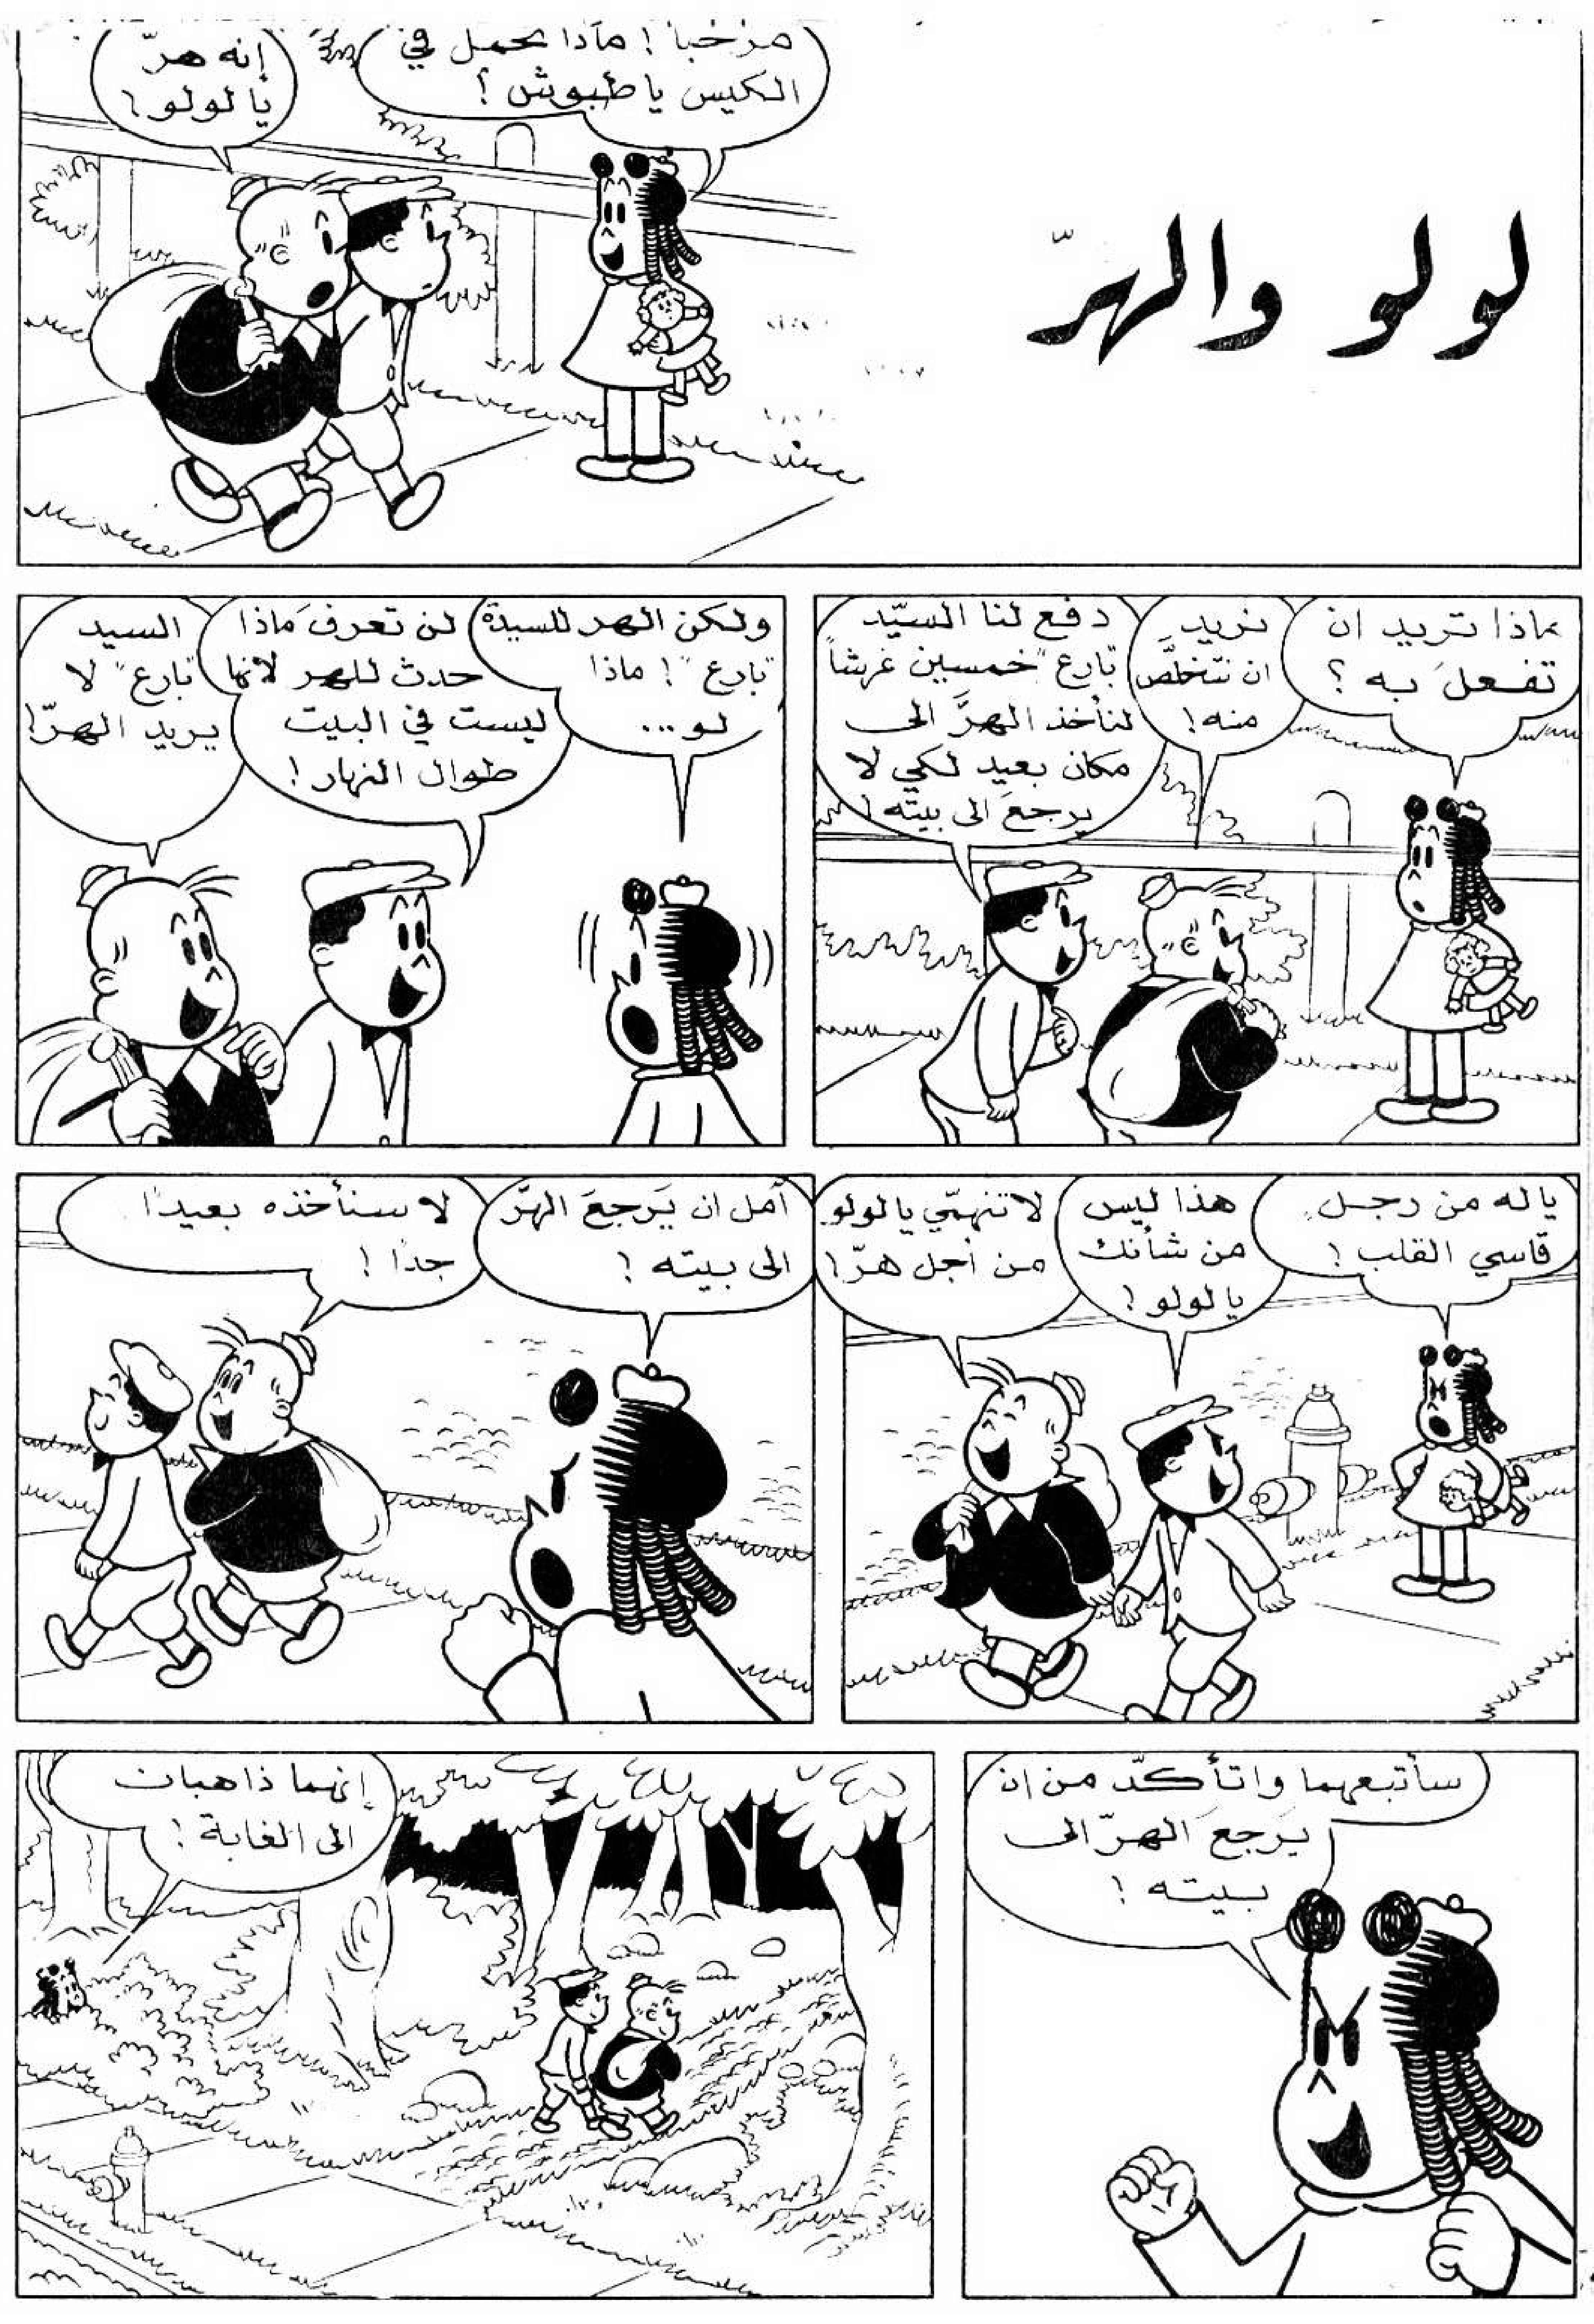 لولو والهرّ
مرحبا! ماذا تحمل في
الكيس يا طبوش؟
إنه هرّ
يا لولو!
ماذا تريد ان
تفعلَ به؟
نريد
ان نتخلّصَ
منه!
دفع لنا السيّد
"بارع" خمسين غرشاً
لنأخذ الهرَّ الى
مكان بعيد لكي لا
يرجعَ الى بيته!
ولكن الهر للسيدة
"بارع"! ماذا
لو...
لن تعرفَ مَاذا
حدث للهر لانها
ليست في البيت
طوال النهار!
السيد
"بارع" لا
يريد الهرّ!
يا له من رجل
قاسي القلب!
هذا ليس
من شأنك
يا لولو!
لا تهتمّي يا لولو
من أجل هرّ!
آمل ان يَرجعَ الهرّ
الى بيته!
لا سنأخذه بعيدًا
جدًا!
سأتبعهما واتأكدّ من ان
يَرجعَ الهرّ الى
بيته!
إنهما ذاهبان
الى الغابة!